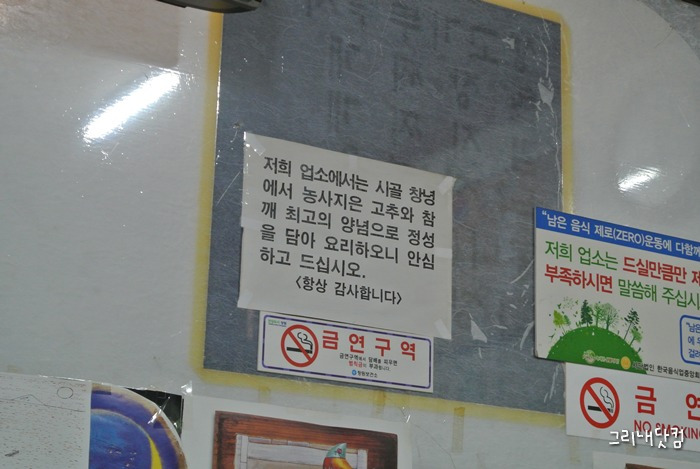 저희 업소에서는 시골 창녕
에서 농사지은 고추와 참
깨 최고의 양념으로 정성
을 담아 요리하오니 안심
하고 드십시오.
<항상 감사합니다>
금연구역
금연구역에서 담배를 피우면
벌칙금이 부과됩니다.
"남은 음식 제로(ZERO)운동에 다함께
저희 업소는 드실만큼만 제
부족하시면 말씀해 주십시
"남은
한국음식업중앙회
금 연
NO SMOKING
그리내닷컴